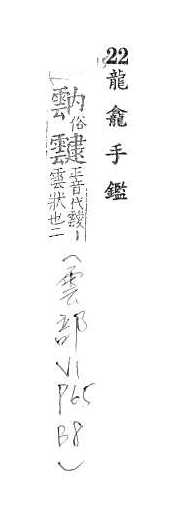 22龍龕手鑑
俗 正音代靉丨雲狀也二
(雲部VI P65 B8)